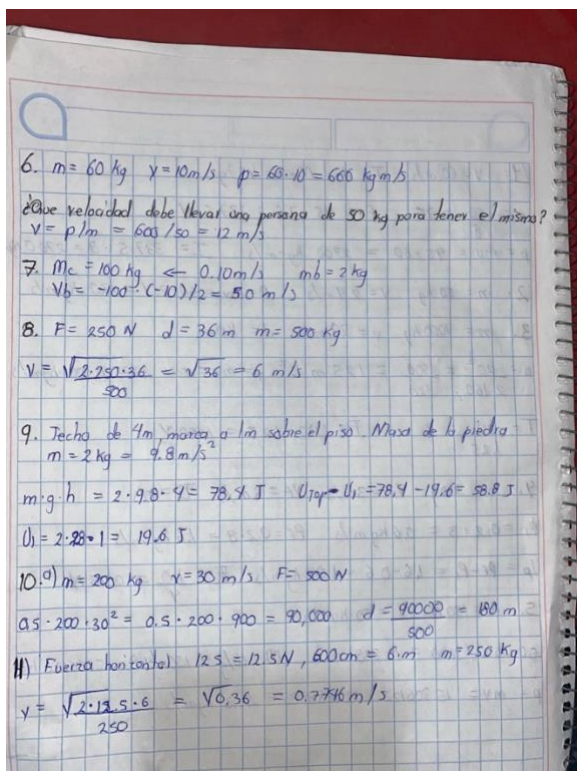 6. m= 60 kg v=10m/s p= 60·10 = 666 kgm/s
¿Que velocidad debe llevar una persona de 50 kg para tener el mismo?
V= p/m = 600/50 = 12 m/s
7. Mc = 100 kg ← 0.10m/s mb= 2 kg
Vb = -100·(-10)/2 = 50 m/s
8. F= 250 N d= 36 m m= 500 kg
V= √2·250·36/500 = √36 = 6 m/s
9. Techo de 4m, marca a 1m sobre el piso. Masa de la piedra
m= 2 kg = 9.8 m/s²
m·g·h = 2·9.8·4= 78.4 J UTop- U1 =78.4 -19.6= 58.8 J.
U1 = 2·98·1= 19.6 J
10.a) m= 200 kg v= 30 m/s F= 500 N
0.5·200·30² = 0.5·200·900 = 90,000 d = 90000/500 = 180 m
11) Fuerza horizontal 12 5 = 12.5N, 600cm = 6·m m=250 Kg
v= √2·12.5·6/250 = √0.36 = 0.7746 m/s